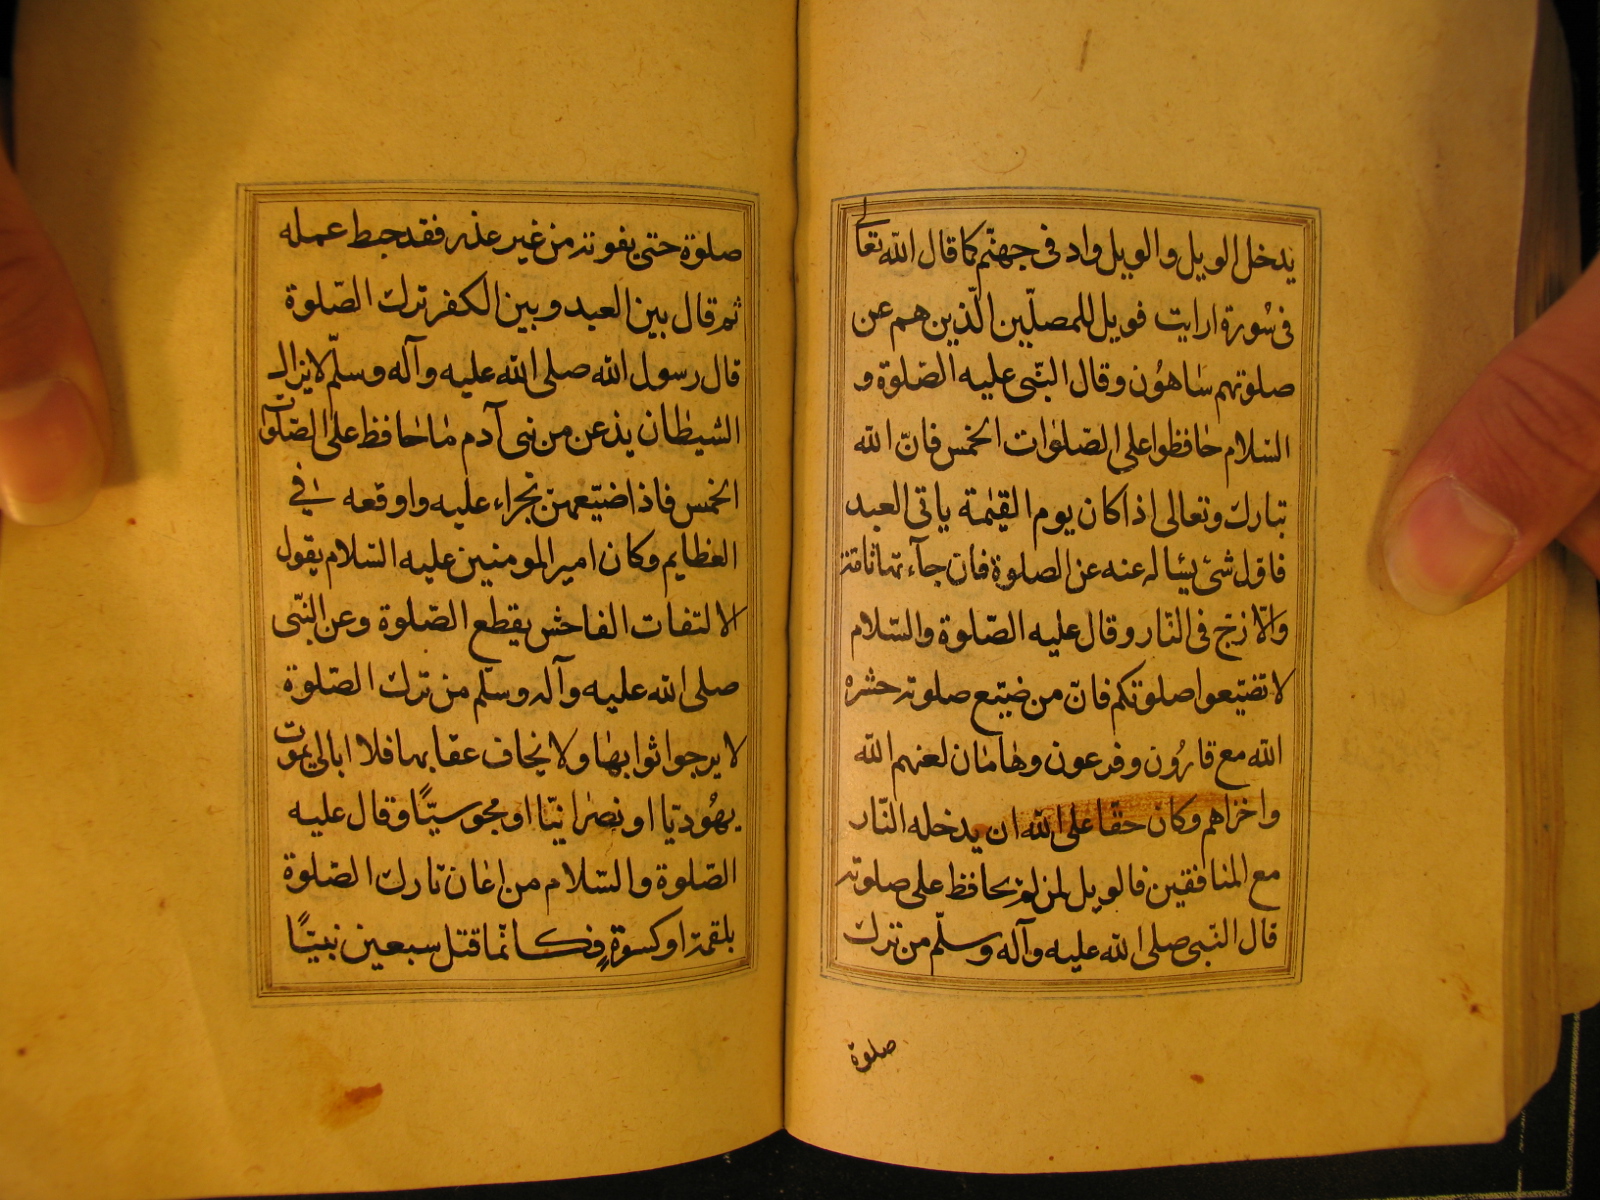 يدخل الويل والويل واد فى جهنّم كما قال اللّه تعالى
فى سُورة ارايت فويل للمصلّين الّذين هم عن
صلوتهم سَاهوُن وقال النّبى عليه الصّلوة و
السّلام حٰافظوا على الصّلوٰات الخمس فانّ اللّه
تبارك وتعالى اذا كان يوم القيٰمة ياتى العبد
فاوّل شئ يسٔاله عنه عن الصلوة فان جآء بها تامّة
والّا زخ فى النّار وقال عليه الصّلوة والسّلام
لا تضيّعوا صلوتكم فانّ من ضيّع صلوته حشره
اللّه مع قارُون وفرعون وهٰامٰان لعنهم اللّه
واخزاهم وكان حقا على اللّه ان يدخله النّار
مع المنافقين فالويل لمن لم يحافظ على صلوته
قال النّبى صلى اللّه عليه وآله وسلّم من ترك
صلوة
صلوة حتى يفوته من غير عذر فقد حبط عمله
ثم قال بين العبد وبين الكفر ترك الصّلوة
قال رسول اللّه صلى اللّه عليه وآله وسلّم لا يزال
الشيطان يذعن من بنى آدم مٰا حٰافظ على الصّلوات
الخمس فاذا ضيّعهنّ تجراء عليه واوقعه فى
العظايم وكان امير المومنين عليه السّلام يقول
الالتفات الفاحش يقطع الصّلوة وعن النّبى
صلى اللّه عليه وآله وسلّم من ترك الصّلوة
لا يرجوا ثوابهٰا ولا يخاف عقابها فلا ابالى يموت
يهُوديّا او نصرٰانيّا او مجوسيّاً وقال عليه
الصّلوة والسّلام من اعٰان تارك الصّلوة
بلقمة او كسوةٍ فكانّما قتل سبعين نبيّاً